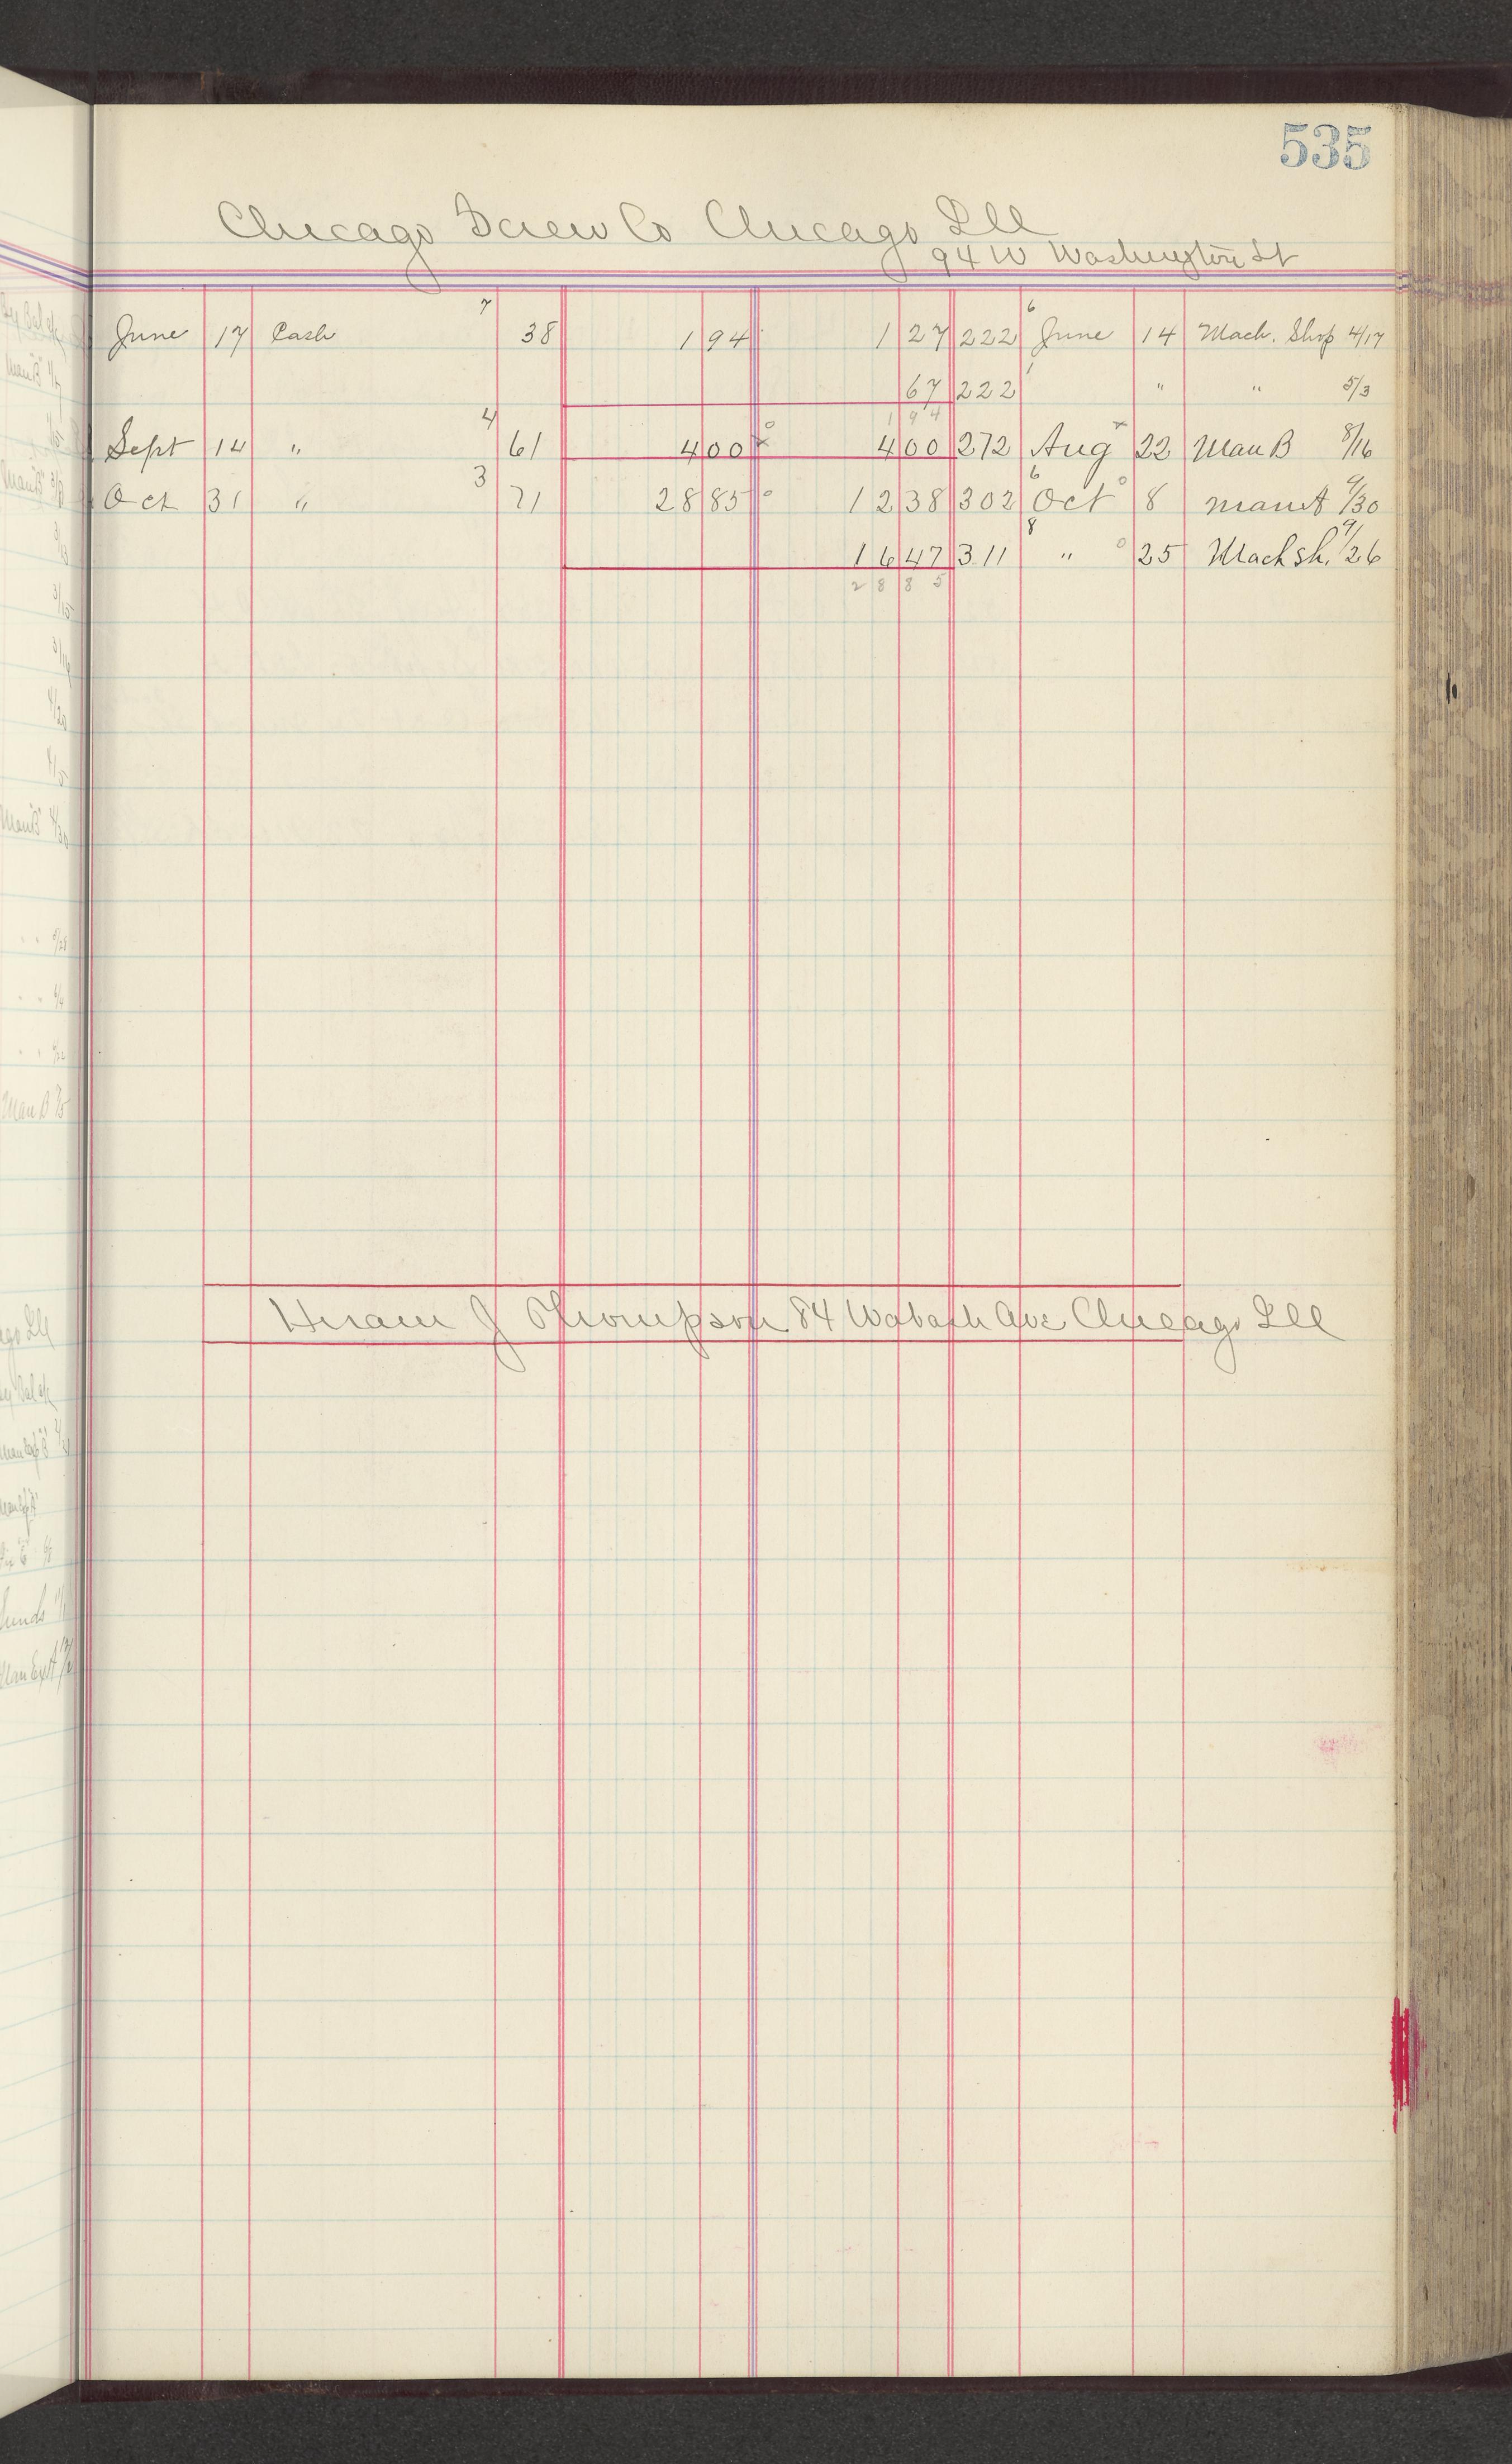 535
Chicago Screw Co Chicago Ill
94 W Washington St
June 17 Cash 7 38 1 94 1 27 222 6 June 14 Mach. Shop 4/17
67 222 " " 5/3
1 94
Sept 14 " 4 61 4 00 x 4 00 272 Aug x 22 Man B 8/16
Oct 31 " 3 71 28 85 12 38 302 6 Oct 8 Man A 9/30
16 47 311 8 " 25 Mach sh. 9/26
28 85
Hiram J Thompson 84 Wabash Ave Chicago Ill